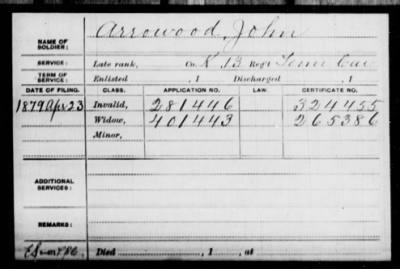 Arrowood, John
NAME OF SOLDIER:
SERVICE: Late rank, Co. K, 13 Reg't Tenn Cav
TERM OF SERVICE: Enlisted , 1 Discharged , 1
DATE OF FILING. CLASS. APPLICATION NO. LAW. CERTIFICATE NO.
1879 Apr 23 Invalid, 281446 324455
Widow, 401443 265386
Minor,
ADDITIONAL SERVICES:
REMARKS:
Died , 1 , at